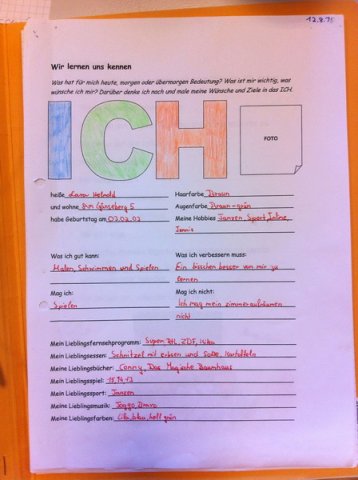 12.8.
Wir lernen uns kennen
Was hat für mich heute, morgen oder übermorgen Bedeutung? Was ist mir wichtig, was
wünsche ich mir? Darüber denke ich nach und male meine Wünsche und Ziele in das ICH.
ICH
FOTO
heiße Lara
und wohne Am Gänseberg 5
habe Geburtstag am 03.03.03
Haarfarbe Braun
Augenfarbe Braun-grün
Meine Hobbies Tanzen, Sport, Inline,
Tennis
Was ich gut kann:
Malen, Schwimmen und Spielen
Was ich verbessern muss:
Ein bisschen besser von mir zu
lernen
Mag ich:
Spielen
Mag ich nicht:
Ich mag mein zimmer aufräumen
nicht
Mein Lieblingsfernsehprogramm: Super RTL, ZDF, kika
Mein Lieblingsessen: Schnitzel mit erbsen und Soße, Kartoffeln
Meine Lieblingsbücher: Conny, Das Magische Baumhaus
Mein Lieblingsspiel:
Mein Lieblingssport: Tanzen
Meine Lieblingsmusik:
Meine Lieblingsfarben: Lila, blau, hell grün